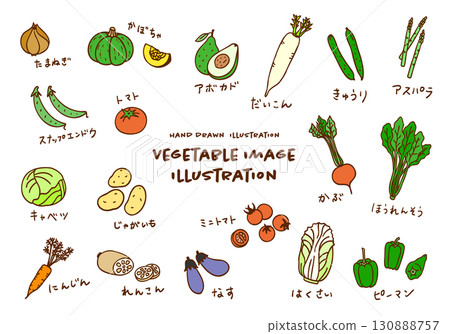 たまねぎ
かぼちゃ
アボカド
だいこん
きゅうり
アスパラ
スナップエンドウ
トマト
HAND DRAWN ILLUSTRATION
VEGETABLE IMAGE
ILLUSTRATION
キャベツ
じゃがいも
ミニトマト
かぶ
ほうれんそう
にんじん
れんこん
なす
はくさい
ピーマン
stock.adobe.com
130888757